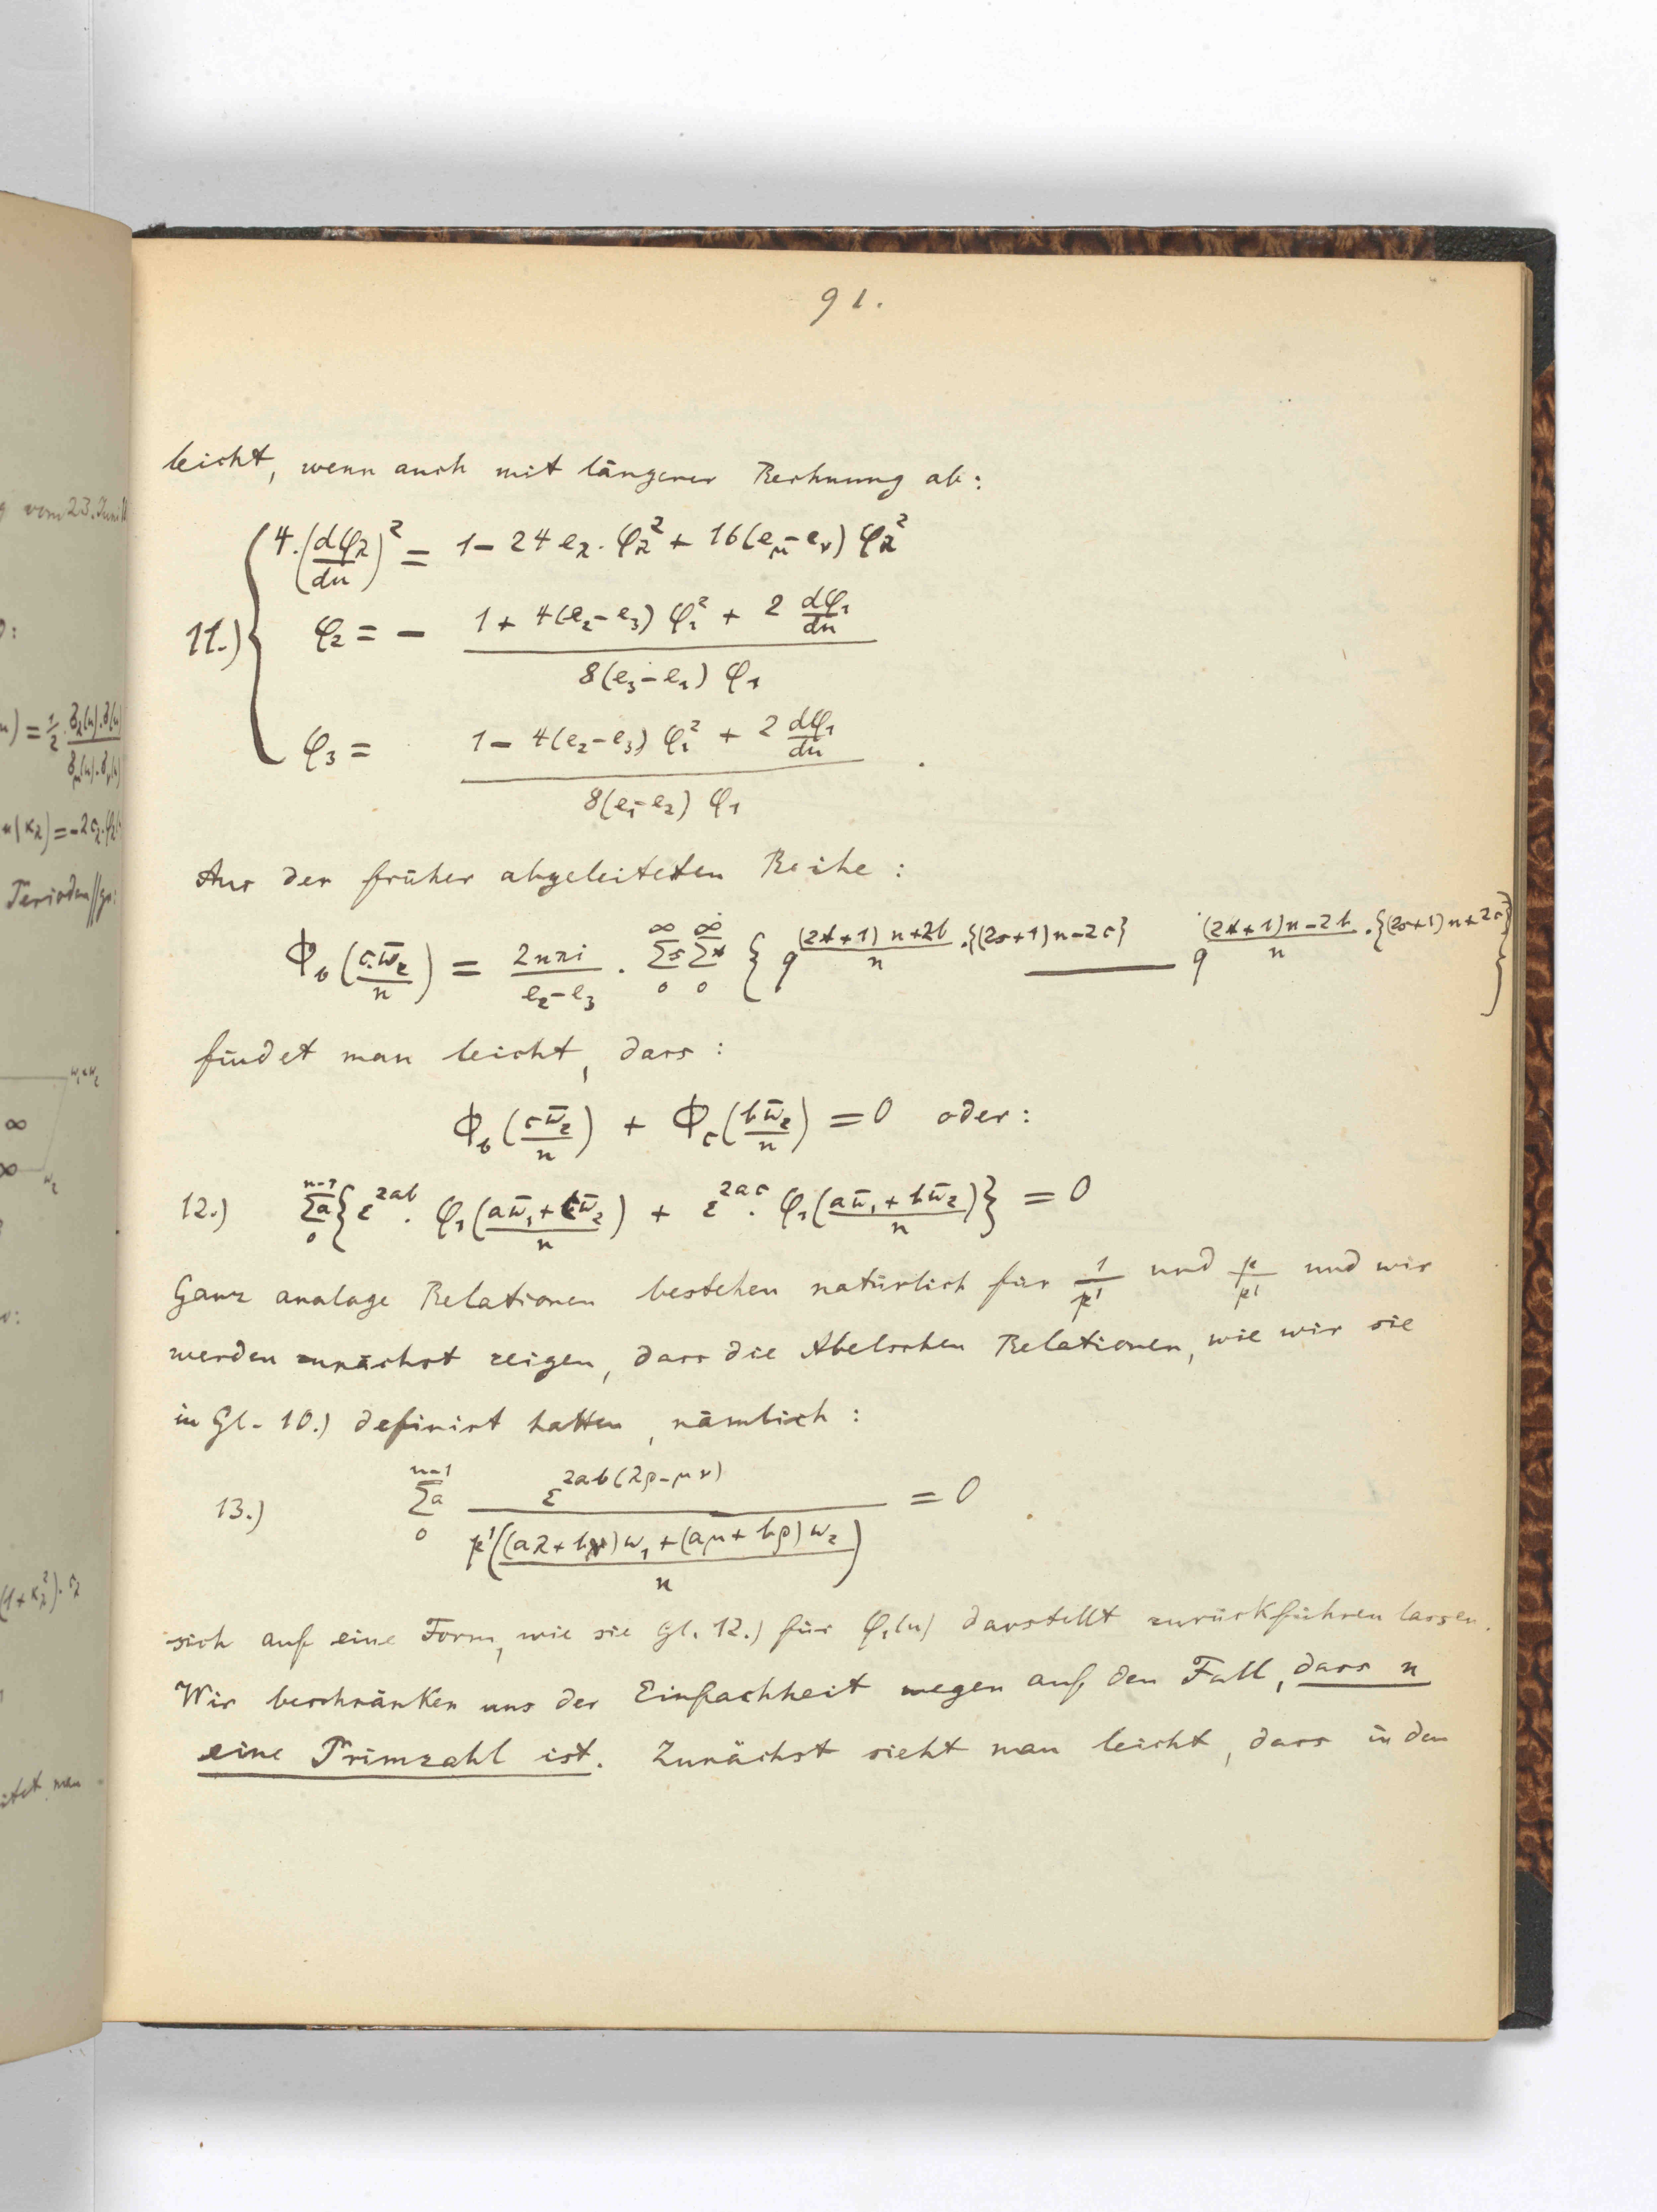 91.
leicht, wenn auch mit längerer Rechnung ab:
11.) { 4.(dφλ/du)² = 1 - 24 eλ. φλ² + 16(eμ - eν) φλ²
φ₂ = - (1 + 4(e₂-e₃) φ₁² + 2 dφ₁/du) / (8(e₃-e₁) φ₁)
φ₃ = (1 - 4(e₂-e₃) φ₁² + 2 dφ₁/du) / (8(e₁-e₂) φ₁) .
Aus der früher abgeleiteten Reihe:
Φ_b(cω̄₂/n) = 2nπi/(e₂-e₃) . ∑s₀^∞ ∑t₀^∞ { q^((2t+1)n+2b)/n .{(2s+1)n-2c} — q^((2t+1)n-2b)/n .{(2s+1)n+2c} }
findet man leicht, dass:
Φ_b(cω̄₂/n) + Φ_c(bω̄₂/n) = 0 oder:
12.) ∑a₀^(n-1) { ε^(2ab) . φ₁((aω̄₁+cω̄₂)/n) + ε^(2ac) . φ₁((aω̄₁+bω̄₂)/n) } = 0
Ganz analoge Relationen bestehen natürlich für 1/p' und p/p' und wir
werden zunächst zeigen, dass die Abelschen Relationen, wie wir sie
in Gl. 10.) definirt hatten, nämlich:
13.) ∑a₀^(n-1) ε^(2ab(λρ-μν)) / p'(((aλ+bν)ω₁+(aμ+bρ)ω₂)/n) = 0
sich auf eine Form, wie sie Gl. 12.) für φ₁(u) darstellt zurückführen lassen.
Wir beschränken uns der Einfachheit wegen auf den Fall, dass n
eine Primzahl ist. Zunächst sieht man leicht, dass in den
g vom 23. Juni
u) = 1/2 .
u(κλ) = -2cλ.φλ
Perioden
ω₁+ω₂
∞
∞
ω₂
(1+κλ²). cλ
itet man